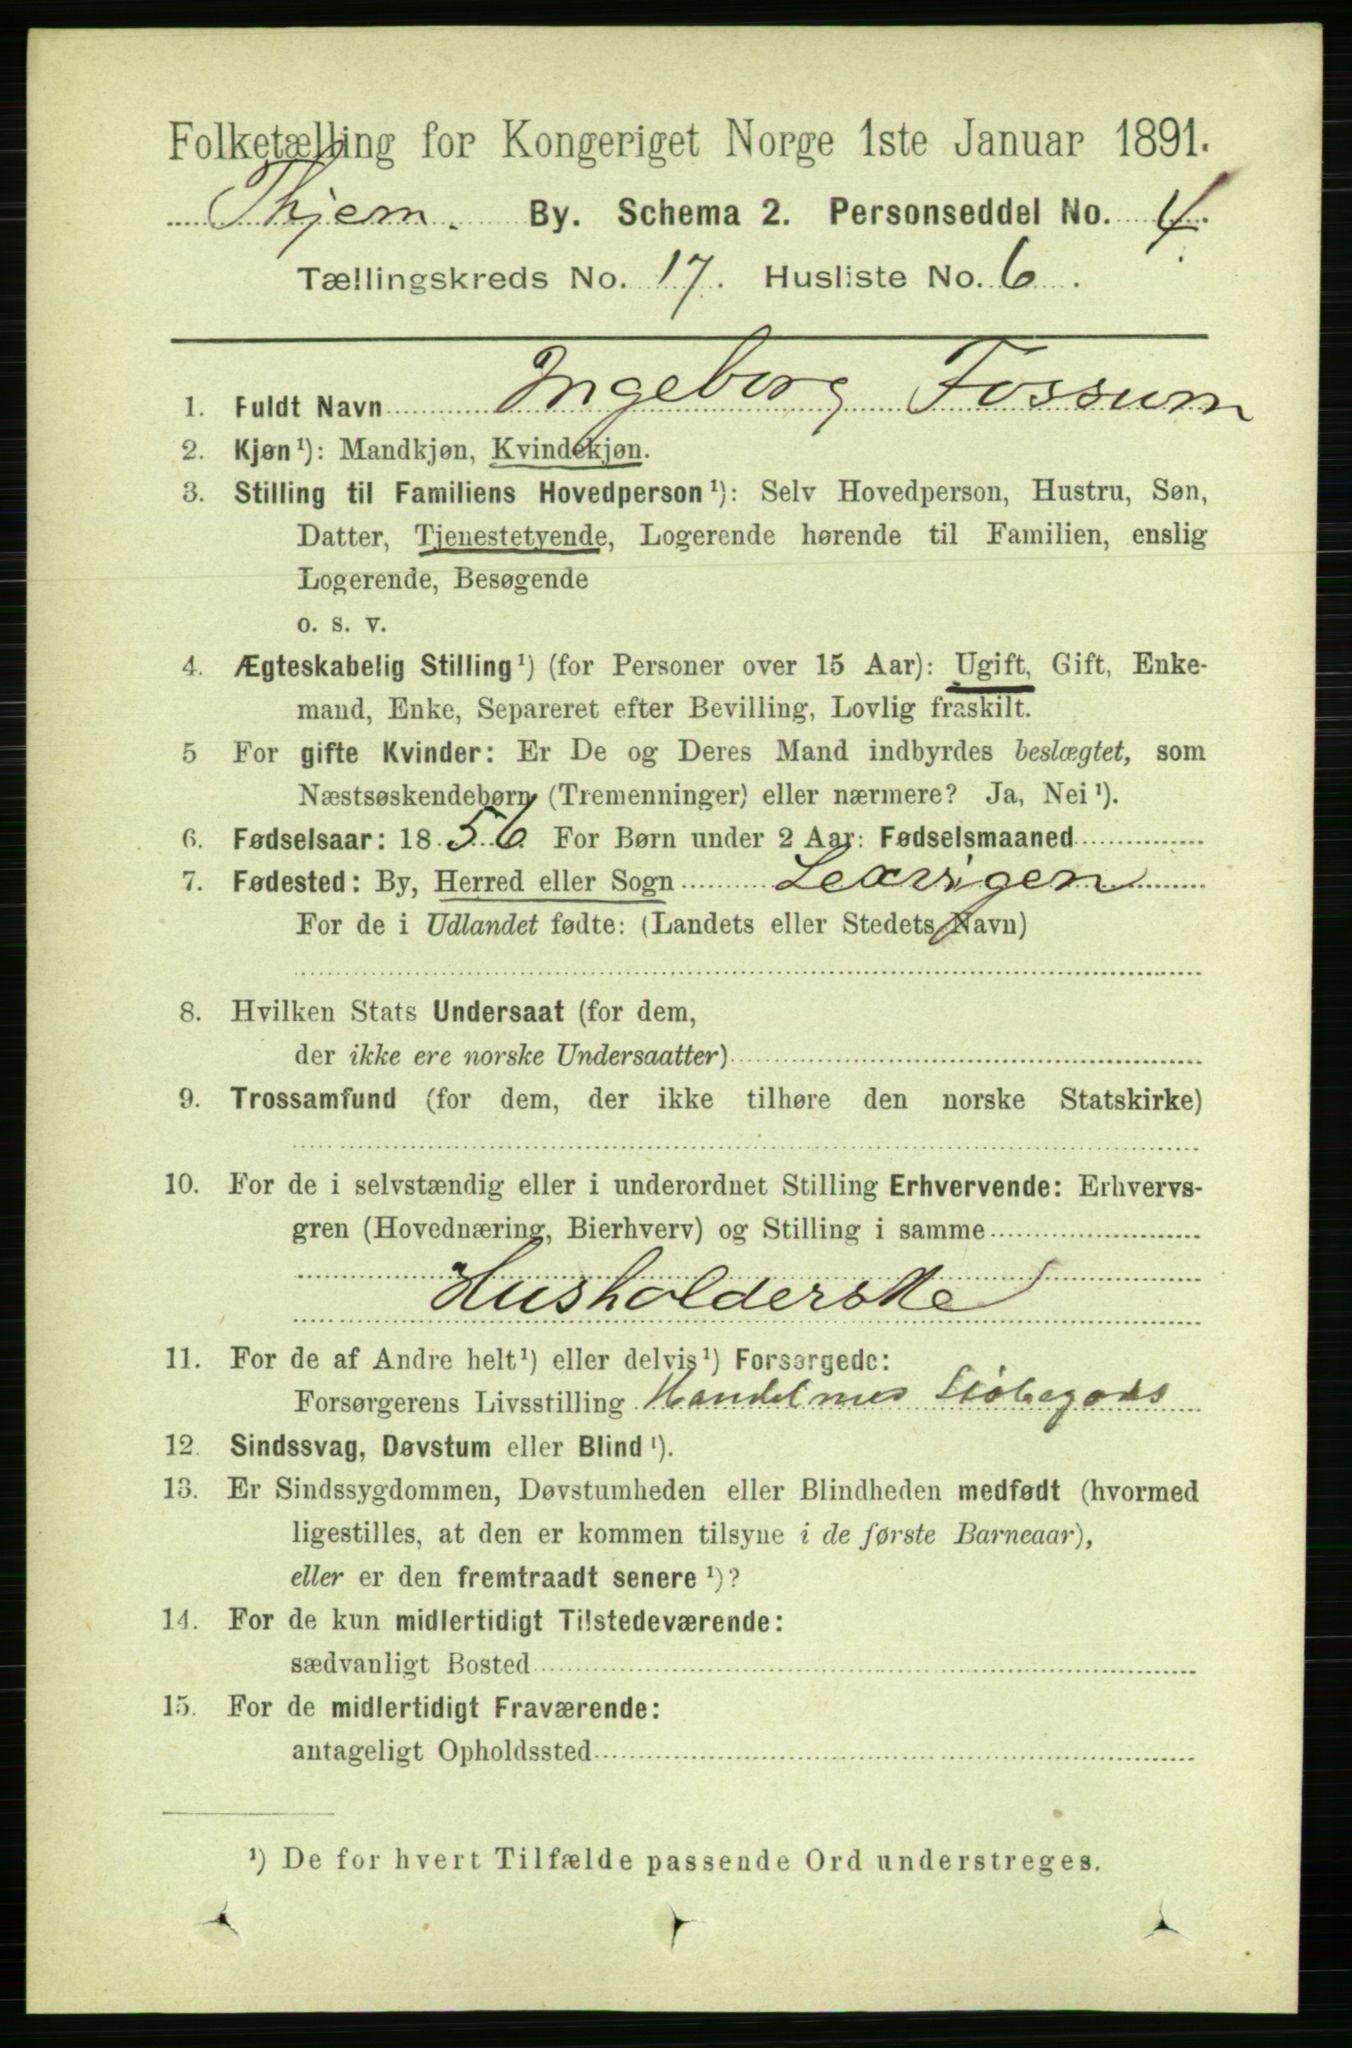 Folketælling for Kongeriget Norge 1ste Januar 1891.
Thjem. By. Schema 2. Personseddel No. 4.
Tællingskreds No. 17. Husliste No. 6.
1. Fuldt Navn Ingeborg Fossum
2. Kjøn¹): Mandkjøn, Kvindekjøn.
3. Stilling til Familiens Hovedperson¹): Selv Hovedperson, Hustru, Søn,
Datter, Tjenestetyende, Logerende hørende til Familien, enslig
Logerende, Besøgende
o. s. v.
4. Ægteskabelig Stilling¹) (for Personer over 15 Aar): Ugift, Gift, Enke-
mand, Enke, Separeret efter Bevilling, Lovlig fraskilt.
5 For gifte Kvinder: Er De og Deres Mand indbyrdes beslægtet, som
Næstsøskendebørn (Tremenninger) eller nærmere? Ja, Nei¹).
6. Fødselsaar: 1856 For Børn under 2 Aar: Fødselsmaaned
7. Fødested: By, Herred eller Sogn Lexvigen
For de i Udlandet fødte: (Landets eller Stedets Navn)
8. Hvilken Stats Undersaat (for dem,
der ikke ere norske Undersaatter)
9. Trossamfund (for dem, der ikke tilhøre den norske Statskirke)
10. For de i selvstændig eller i underordnet Stilling Erhvervende: Erhvervs-
gren (Hovednæring, Bierhverv) og Stilling i samme
Husholderske
11. For de af Andre helt¹) eller delvis¹) Forsørgede:
Forsørgerens Livsstilling
12. Sindssvag, Døvstum eller Blind¹).
13. Er Sindssygdommen, Døvstumheden eller Blindheden medfødt (hvormed
ligestilles, at den er kommen tilsyne i de første Barneaar),
eller er den fremtraadt senere¹)?
14. For de kun midlertidigt Tilstedeværende:
sædvanligt Bosted
15. For de midlertidigt Fraværende:
antageligt Opholdssted
¹) De for hvert Tilfælde passende Ord understreges.